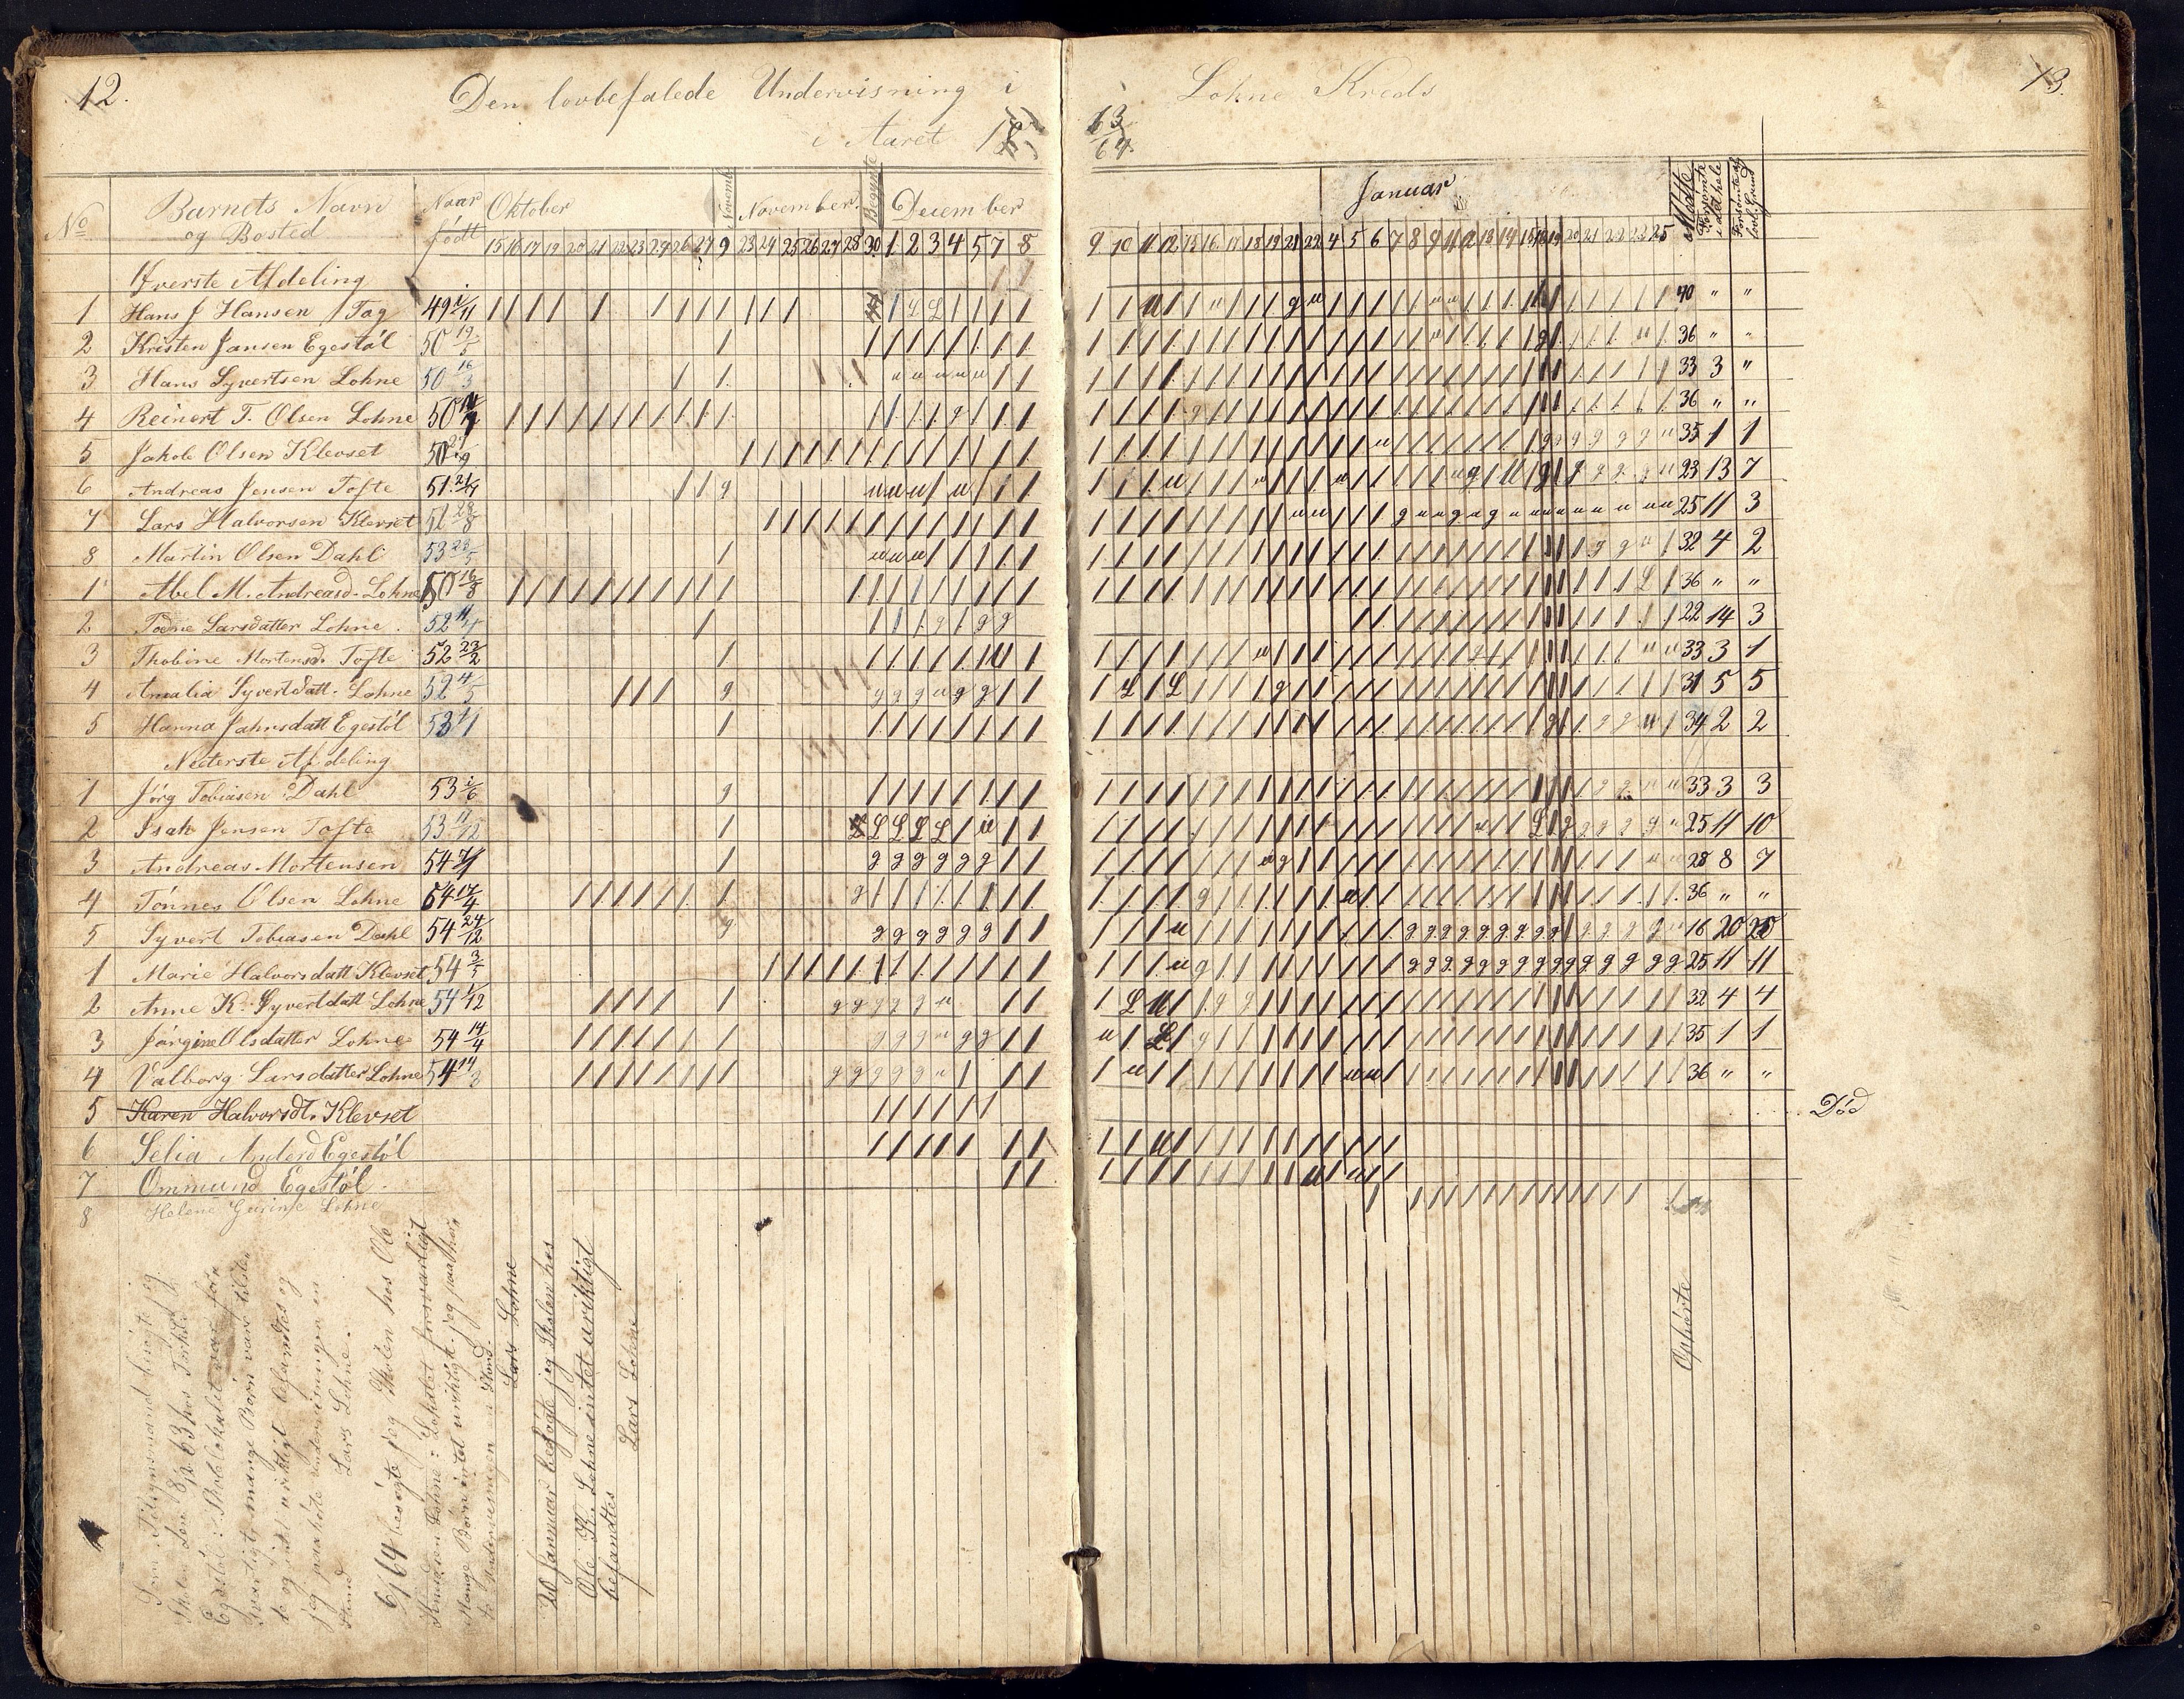 12.
Den lovbefalede Undervisning i
i Aaret 18
Lohne Kreds
63/64
13.
No
Barnets Navn og Bosted
Naar født
Oktober
November
November.
Begynte
December
Januar
Mødte
Forsømte i det hele
Forsømte af lovl. Grund
15 16 17 19 20 21 22 23 24 26 27 9 23 24 25 26 27 28 30. 1 2 3 4 5 7 8
9 10 11 12 15 16 17 18 19 21 22 4 5 6 7 8 9 11 12 13 14 15 16 19 20 21 22 23 25
Øverste Afdeling
1 Hans J Hansen Tag 49 1/11 40 " "
2 Kristen Jansen Egestøl 50 19/5 36 " "
3 Hans Syvertsen Lohne 50 16/3 33 3 "
4 Reinert T. Olsen Lohne 50 36 " "
5 Jakob Olsen Klevset 50 35 1 1
6 Andreas Jensen Tofte 51 23 13 7
7 Lars Halvorsen Klevset 25 11 3
8 Martin Olsen Dahl 53 23/5 32 4 2
1 Abel M. Andreasd. Lohne 50 16/8 36 " "
2 Larsdatter Lohne. 52 11/4 22 14 3
3 Thobine Mortensd. Tofte 52 23/2 33 3 1
4 Amalia Syvertdatt. Lohne 52 4/5 31 5 5
5 Hanna Jahnsdatt Egestöl 53 34 2 2
Nederste Afdeling
1 Jörg Tobiasen Dahl 53 1/6 33 3 3
2 Isak Jensen Tofte 53 11/12 25 11 10
3 Andreas Mortensen 54 28 8 7
4 Tönnes Olsen Lohne 54 17/4 36 " "
5 Syvert Tobiasen Dahl 54 24/12 16 20 20
1 Marie Halvorsdatt Klevset 54 3/5 25 11 11
2 Anne K. Syvertdatt Lohne 54 1/12 32 4 4
3 Jörgine Olsdatter Lohne 54 14/4 35 1 1
4 Valborg Larsdatter Lohne 54 14/3 36 " "
5 Karen Halvorsdt. Klevset Död
6 Selia Anderd Egestöl
7 Ommund Egestöl.
8 Helene Lohne
Som Tilsynsmand besøgte jeg
Skolen den 8/12 63 hos
Egestøl: Skolelokalet var for
svarligt, mange Børn vare tilste
de og intet urigtigt befandtes og
jeg paahörte Undervisningen en
Stund Lars Lohne.
6/1 64 besøgte jeg Skolen hos Ole
Lohne: Lokalet forsvarligt
Mange Børn intet urigtigt. jeg paahör
te Undervisningen en Stund.
Lars Lohne
20 Januar besøgte jeg Skolen hos
Ole K. Lohne intet urigtigt
befandtes
Lars Lohne
Ophørte